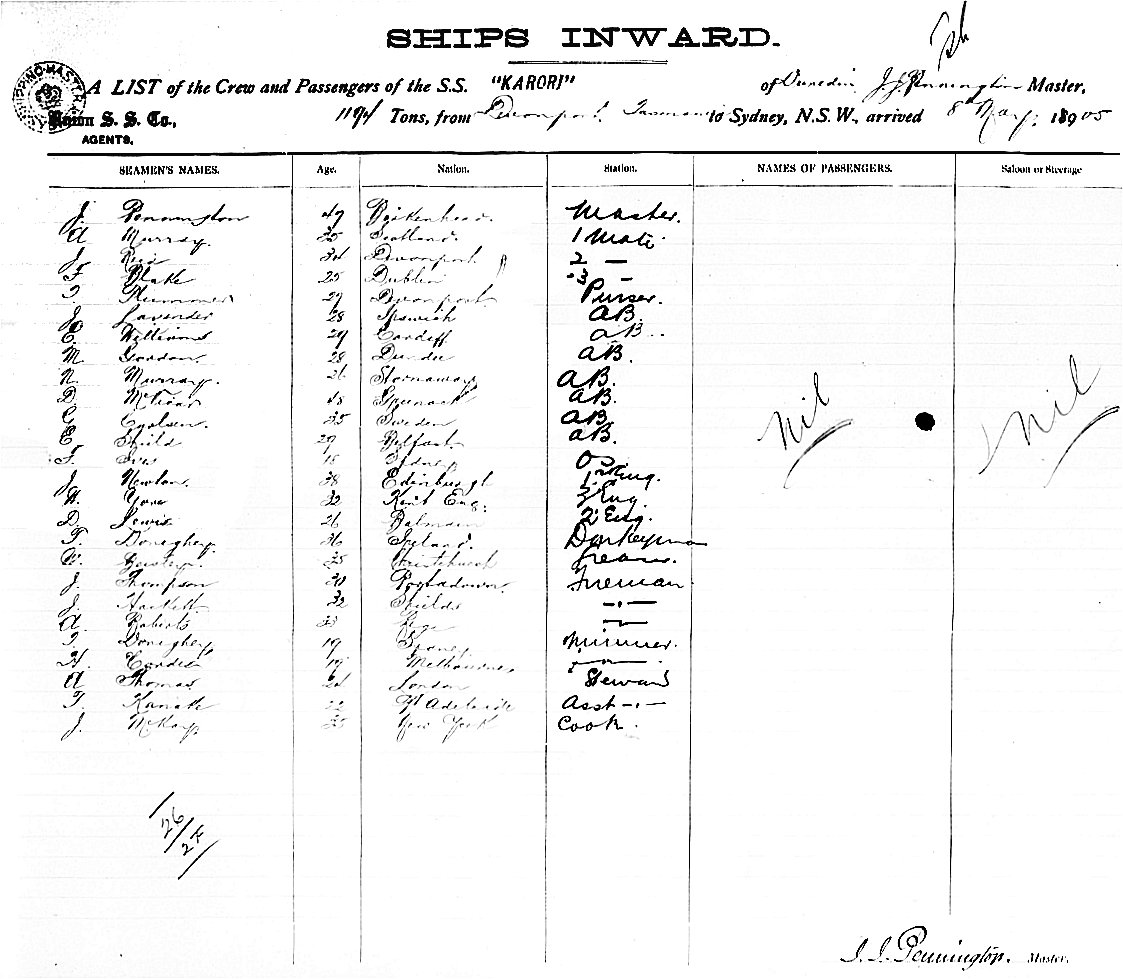 SHIPS INWARD.
A LIST of the Crew and Passengers of the S.S. "KARORI" of Dunedin J. J. Pennington Master,
Union S. S. Co., 1194 Tons, from Devonport, Tasmania to Sydney, N.S.W., arrived 8th May: 1905
AGENTS.
SHIPPING MASTER
SEAMEN'S NAMES. Age. Nation. Station. NAMES OF PASSENGERS. Saloon or Steerage
J. Pennington 49 Birkenhead. Master.
A Murray. 35 Scotland. 1 Mate
J. Reid 34 Devonport 2 —
F Blake 25 Dublin 3 -
T. Plummer 29 Devonport Purser.
J. Lavender 28 Ipswich AB.
E. Williams 29 Cardiff AB..
M. Gordon. 28 Dundee AB.
N. Murray. 26 Stornaway AB.
D. 48 AB.
C. 35 Sweden AB
E. Shield 29 Belfast AB.
F. Ives 18 Sydney OS
J. Newton. 38 Edinburgh 1st Eng.
H. 32 Kent Eng. 3 Eng
D. Lewis 26 Balmain 2 Eng.
T. Doneghey. 36 Ireland. Donkeyman
25 Christchurch Greaser.
J. Thompson 30 Portadown Fireman
J. Hartlett 32 Shields —"—
A. Roberts 33 —"—
T. Doneghey 19 Sydney Trimmer.
H. 19 Melbourne —"—
A Thomas 24 London Steward
T. 22 Pt Adelaide Asst —"—
J. McKay 35 New York Cook.
Nil Nil
26/27
J. J. Pennington. Master.